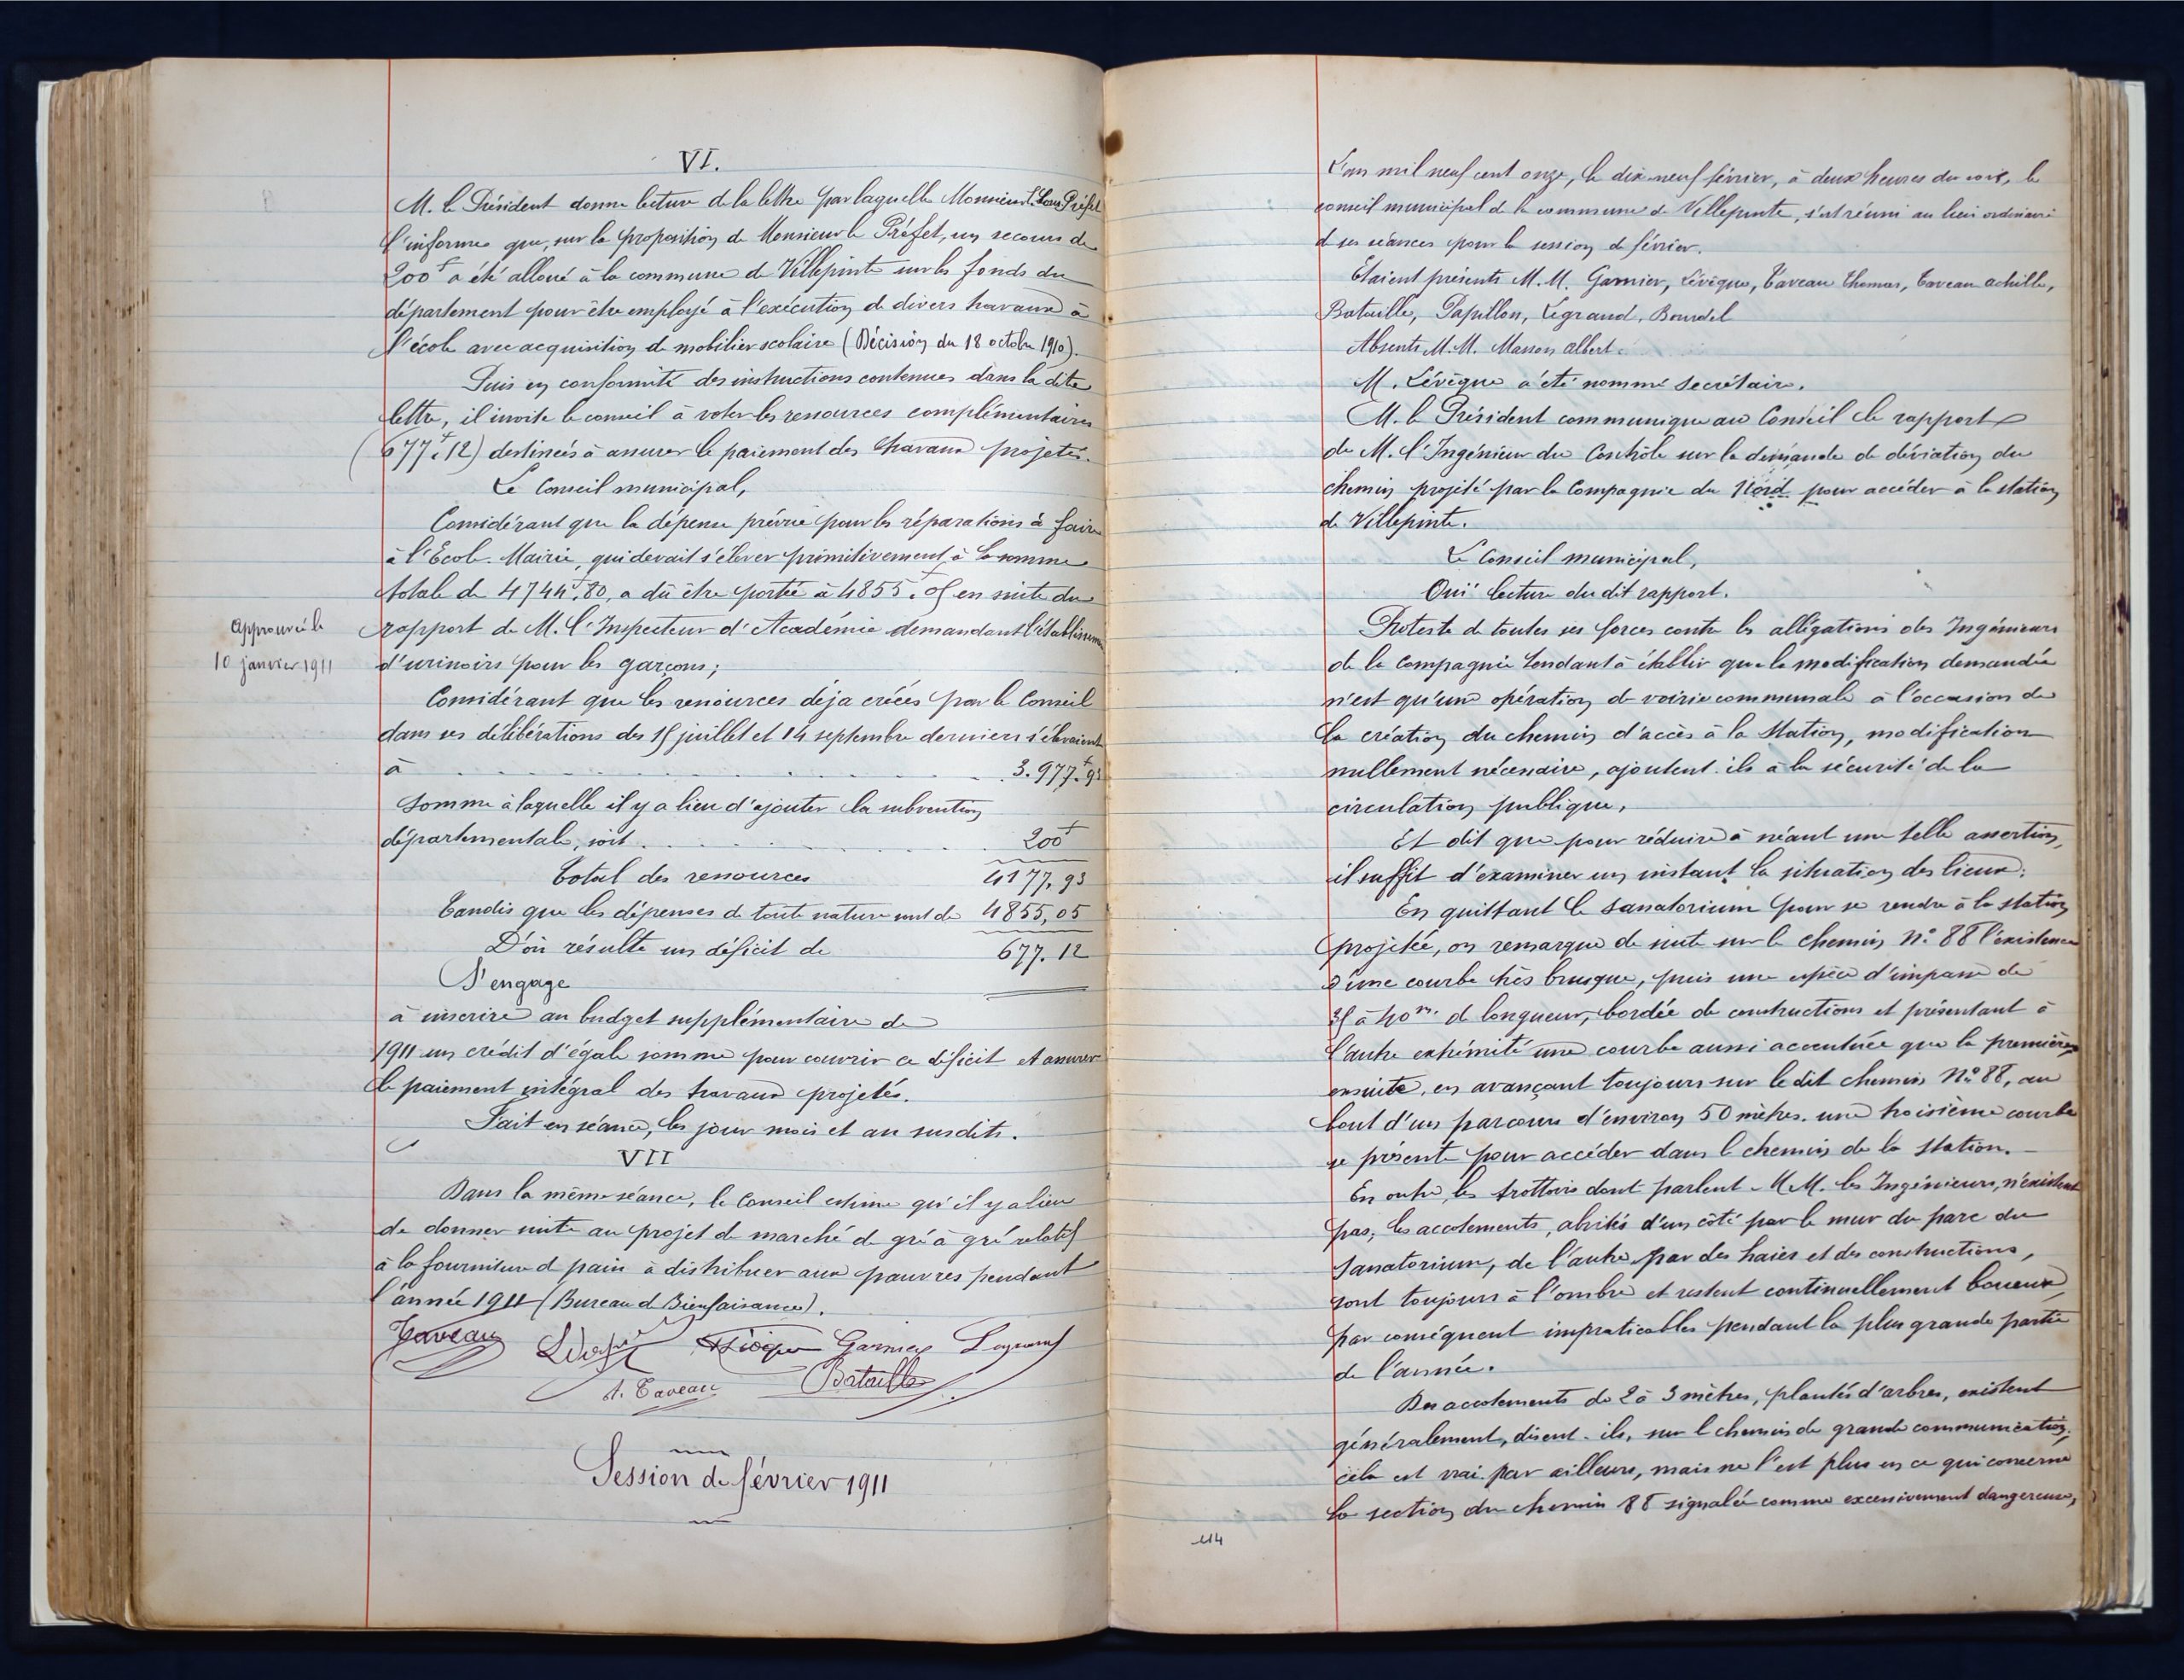 VI.
M. le Président donne lecture de la lettre par laquelle Monsieur le Sous Préfet
l'informe que, sur la proposition de Monsieur le Préfet, un secours de
200f a été alloué à la commune de Villepinte sur les fonds du
département pour être employé à l'exécution de divers travaux à
l'école avec acquisition de mobilier scolaire (Décision du 18 octobre 1910).
Puis en conformité des instructions contenues dans la dite
lettre, il invite le conseil à voter les ressources complémentaires
(677f.12) destinées à assurer le paiement des travaux projetés.
Le Conseil municipal,
Considérant que la dépense prévue pour les réparations à faire
à l'Ecole-Mairie, qui devait s'élever primitivement à la somme
totale de 4744f.80, a dû être portée à 4855.05 en suite du
rapport de M. l'Inspecteur d'Académie demandant l'établissement
d'urinoirs pour les garçons;
approuvé le
10 janvier 1911
Considérant que les ressources déja créées par le Conseil
dans ses délibérations des 15 juillet et 14 septembre derniers s'élevaient
à . . . . . . . . . . 3.977.f93
somme à laquelle il y a lieu d'ajouter la subvention
départementale, soit . . . . . . . . 200f
Total des ressources 4177,93
Tandis que les dépenses de toute nature sont de 4855,05
D'où résulte un déficit de 677.12
S'engage
à inscrire au budget supplémentaire de
1911 un crédit d'égale somme pour couvrir ce déficit et assurer
le paiement intégral des travaux projetés.
Fait en séance, les jour mois et an susdits.
VII
Dans la même séance, le Conseil estime qu'il y a lieu
de donner suite au projet de marché de gré à gré relatif
à la fourniture de pain à distribuer aux pauvres pendant
l'année 1911 (Bureau de Bienfaisance).
Taveau Garnier Legrand
A. Taveau Bataille
Session de février 1911
L'an mil neuf cent onze, le dix-neuf février, à deux heures du soir, le
conseil municipal de la commune de Villepinte, s'est réuni au lieu ordinaire
de ses séances pour la session de février.
Etaient présents M.M. Garnier, Lévêque, Taveau Thomas, Taveau achille,
Bataille, Papillon, Legrand, Bourdel
Absents M.M. Masson albert.
M. Lévêque a été nommé secrétaire.
M. le Président communique au Conseil le rapport
de M. l'Ingénieur du Contrôle sur la demande de déviation du
chemin projeté par la Compagnie du Nord pour accéder à la station
de Villepinte.
Le Conseil municipal,
Ouï lecture du dit rapport.
Proteste de toutes ses forces contre les allégations des Ingénieurs
de la Compagnie tendant à établir que la modification demandée
n'est qu'une opération de voirie communale à l'occasion de
la création du chemin d'accès à la station, modification
nullement nécessaire, ajoutent-ils à la sécurité de la
circulation publique,
Et dit que pour réduire à néant une telle assertion,
il suffit d'examiner un instant la situation des lieux:
En quittant le sanatorium pour se rendre à la station
projetée, on remarque de suite sur le chemin N° 88 l'existence
d'une courbe très brusque, puis une espèce d'impasse de
35 à 40m. de longueur, bordée de constructions et présentant à
l'autre extrémité une courbe aussi accentuée que la première
ensuite, en avançant toujours sur le dit chemin N° 88, au
bout d'un parcours d'environ 50 mètres, une troisième courbe
se présente pour accéder dans le chemin de la station. -
En outre, les trottoirs dont parlent M.M. les Ingénieurs, n'existent
pas; les accotements, abrités d'un côté par le mur du parc du
Sanatorium, de l'autre par des haies et des constructions,
sont toujours à l'ombre et restent continuellement boueux,
par conséquent impraticables pendant la plus grande partie
de l'année.
Des accotements de 2 à 3 mètres, plantés d'arbres, existent
généralement, disent-ils, sur le chemin de grande communication;
cela est vrai par ailleurs, mais ne l'est plus en ce qui concerne
la section du chemin 88 signalée comme excessivement dangereuse,
114